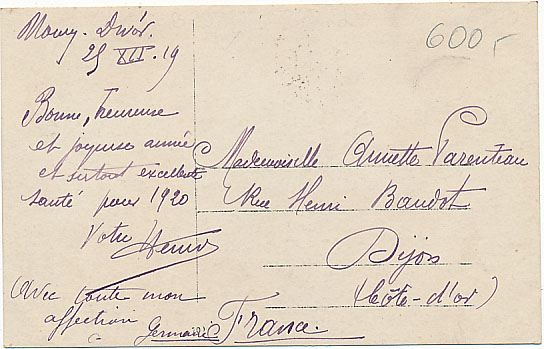 25 XII. 19
600,-
Bonne, heureuse
et joyeuse année
et surtout excellente
santé pour 1920
Votre Henri
Avec toute mon
affection
Mademoiselle Annette Parenteau
Rue Henri Baudot
Dijon
(Côte-d'or)
France.